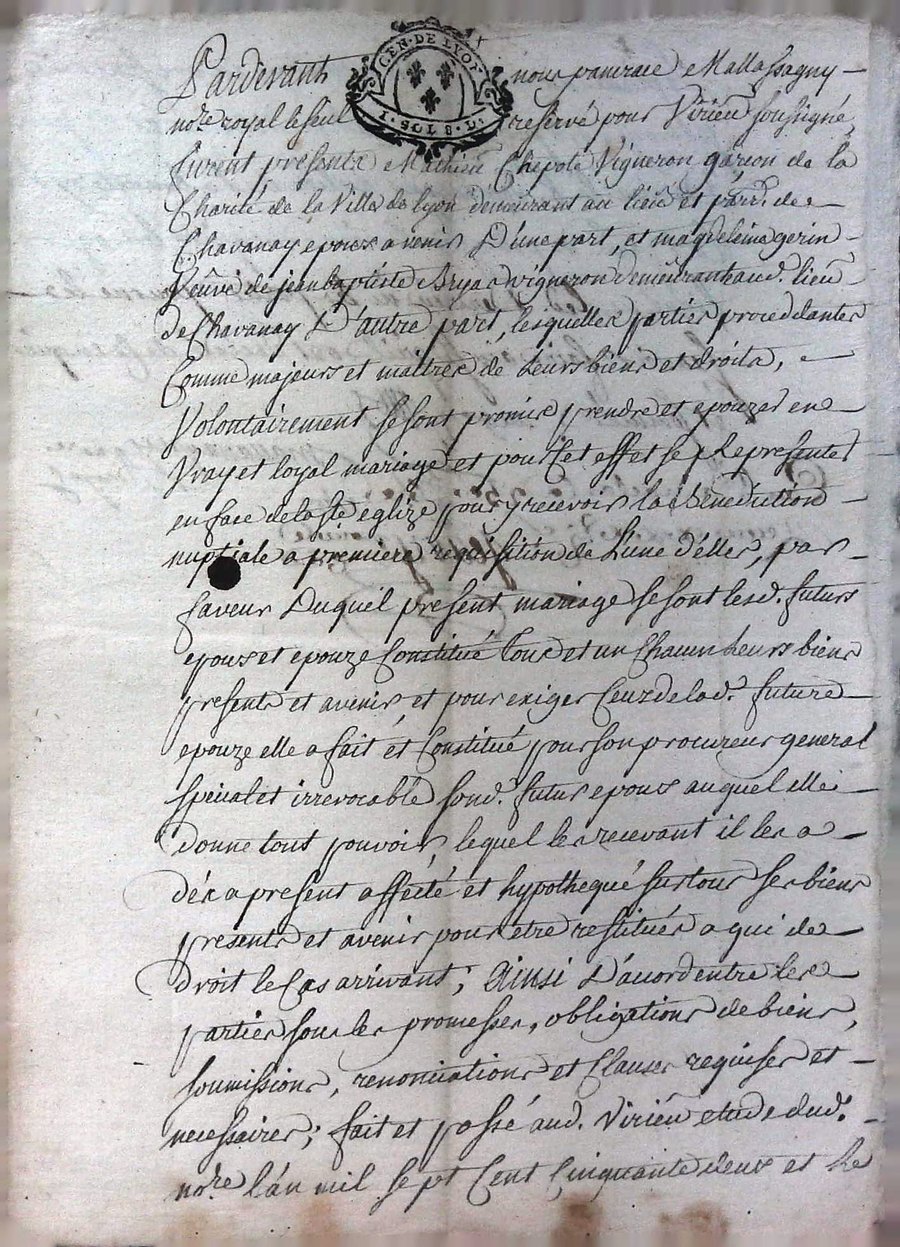 GEN · DE LYON
1 · SOL 8 · D ·
Pardevant nous pancrace Mallassagny
nore. royal le seul reservé pour Virieu soussigné
furent presents Mathieu Chepote Vigneron garçon de la
Charité de la Ville de Lyon demeurant au lieu et parr. de
Chavanay epoux a venir D'une part, et magdeleine gerin
Veuve de jean baptiste Bryas vigneron demeurante aud. lieu
de Chavanay D'autre part, lesquelles parties proceddantes
Comme majeurs et maitres de Leurs biens et droits,
Volontairement se sont promis prendre et epouzer en
Vray et loyal mariage et pour Cet effet se Representer
en face de la ste eglize pour y recevoir la Benediction
nuptiale a premiere requisition de L'une d'elles, par
faveur Duquel present mariage se sont lesd. futurs
epoux et epouze Constitué tous et un Chacun Leurs biens
presents et avenir et pour exiger Ceux de lad. future
epouze elle a fait et Constitué pour son procureur general
special et irrevocable sond. futur epoux auquel elle
donne tout pouvoir, lequel les recevant il les a
dès a present affecté et hypothequé sur tous ses biens
presents et avenir pour être restitués a qui de
droit le Cas arrivant; ainsi D'acord entre les
parties sous les promesses, obligations de biens,
soumissions, renonciations et Clauses requises et
necessaires; fait et passé aud. Virieu etude dud.
nore. l'an mil sept Cent Cinquante deux et Le